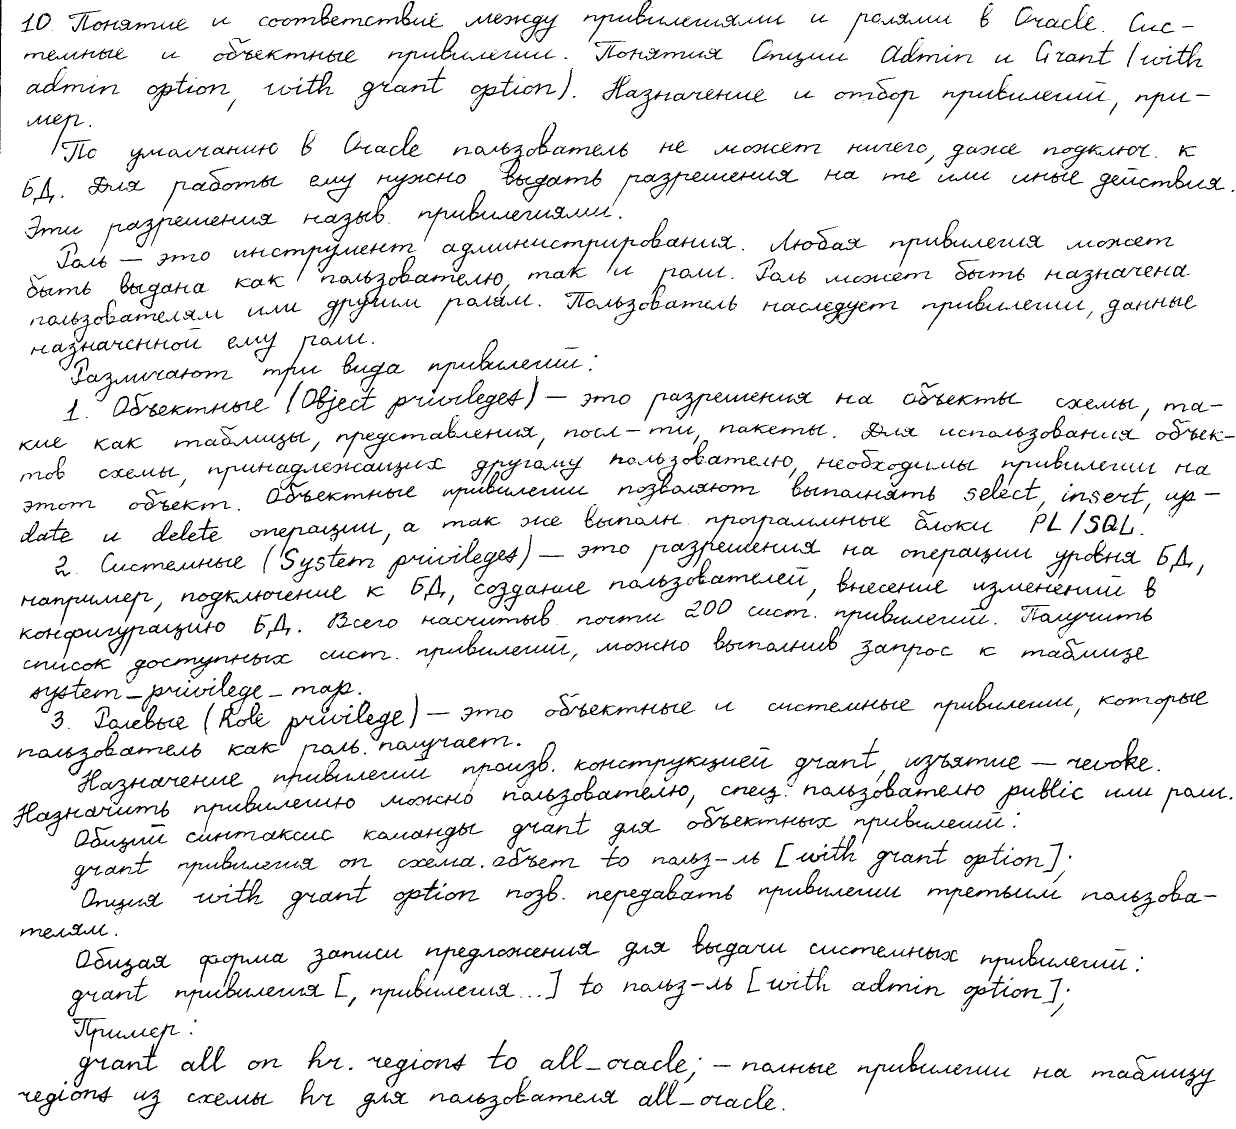 10. Понятие и соответствие между привилегиями и ролями в Oracle. Сис-
темные и объектные привилегии. Понятия Опции Admin и Grant (with
admin option, with grant option). Назначение и отбор привилегий, при-
мер.
По умолчанию в Oracle пользователь не может ничего, даже подключ. к
БД. Для работы ему нужно выдать разрешения на те или иные действия.
Эти разрешения назыв. привилегиями.
Роль — это инструмент администрирования. Любая привилегия может
быть выдана как пользователю, так и роли. Роль может быть назначена
пользователям или другим ролям. Пользователь наследует привилегии, данные
назначенной ему роли.
Различают три вида привилегий:
1. Объектные (Object privileges) — это разрешения на объекты схемы, та-
кие как таблицы, представления, посл-ти, пакеты. Для использования объек-
тов схемы, принадлежащих другому пользователю, необходимы привилегии на
этот объект. Объектные привилегии позволяют выполнять select, insert, up-
date и delete операции, а так же выполн. программные блоки PL/SQL.
2. Системные (System privileges) — это разрешения на операции уровня БД,
например, подключение к БД, создание пользователей, внесение изменений в
конфигурацию БД. Всего насчитыв. почти 200 сист. привилегий. Получить
список доступных сист. привилегий, можно выполнив запрос к таблице
system_privilege_map.
3. Ролевые (Role privilege) — это объектные и системные привилегии, которые
пользователь как роль получает.
Назначение привилегий произв. конструкцией grant, изъятие — revoke.
Назначить привилегию можно пользователю, спец. пользователю public или роли.
Общий синтаксис команды grant для объектных привилегий:
grant привилегия on схема.объет to польз-ль [with grant option];
Опция with grant option позв. передавать привилегии третьим пользова-
телям.
Общая форма записи предложения для выдачи системных привилегий:
grant привилегия [, привилегия...] to польз-ль [with admin option];
Пример:
grant all on hr.regions to all_oracle; — полные привилегии на таблицу
regions из схемы hr для пользователя all_oracle.